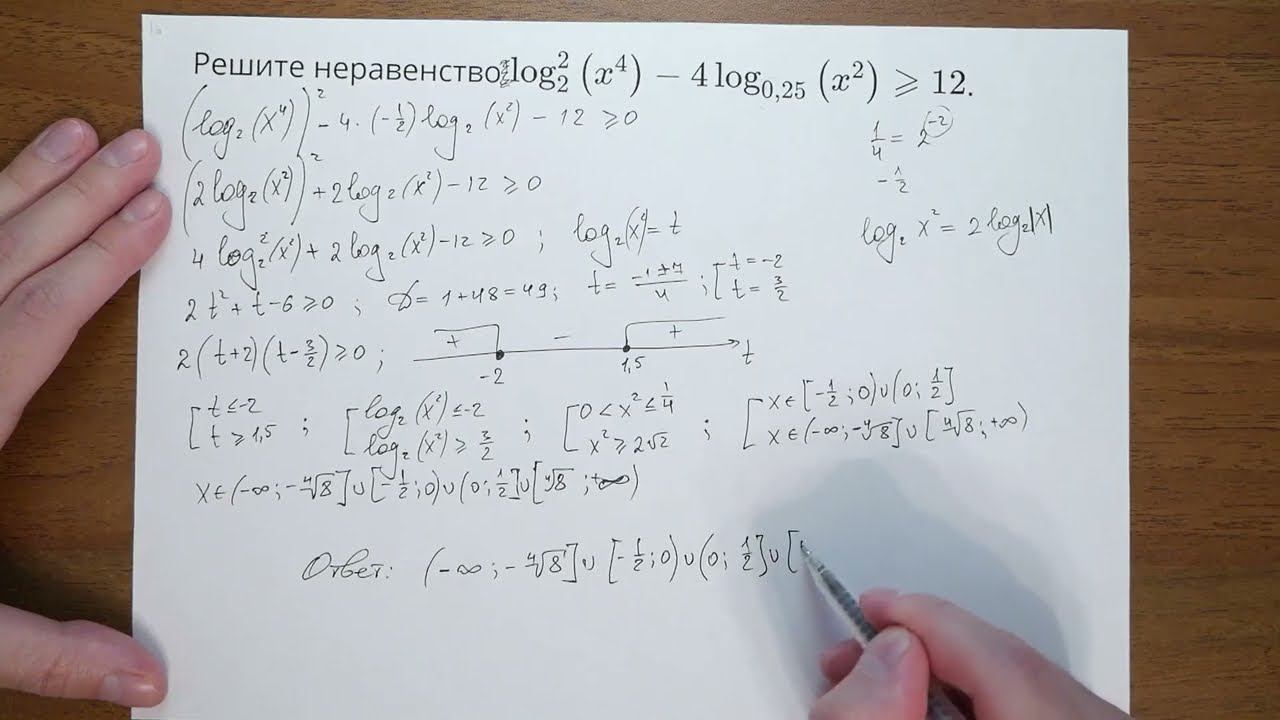 Решите неравенство log₂² (x⁴) − 4 log₀,₂₅ (x²) ⩾ 12.
(log₂(x⁴))² − 4 · (−1/2) log₂ (x²) − 12 ≥ 0
1/4 = 2⁻²
−1/2
(2 log₂(x²))² + 2 log₂(x²) − 12 ≥ 0
log₂ x² = 2 log₂|x|
4 log₂²(x²) + 2 log₂(x²) − 12 ≥ 0 ; log₂(x²) = t
2t² + t − 6 ≥ 0 ; D = 1 + 48 = 49; t = (−1 ± 7)/4 ; [ t = −2 t = 3/2
2(t+2)(t − 3/2) ≥ 0 ; + − + −2 1,5 t
[ t ≤ −2 t ≥ 1,5 ; [ log₂(x²) ≤ −2 log₂(x²) ≥ 3/2 ; [ 0 < x² ≤ 1/4 x² ≥ 2√2 ; [ x ∈ [−1/2 ; 0) ∪ (0; 1/2] x ∈ (−∞; −⁴√8] ∪ [⁴√8; +∞)
x ∈ (−∞; −⁴√8] ∪ [−1/2; 0) ∪ (0; 1/2] ∪ [⁴√8 ; +∞)
Ответ: (−∞; −⁴√8] ∪ [−1/2; 0) ∪ (0; 1/2] ∪ [